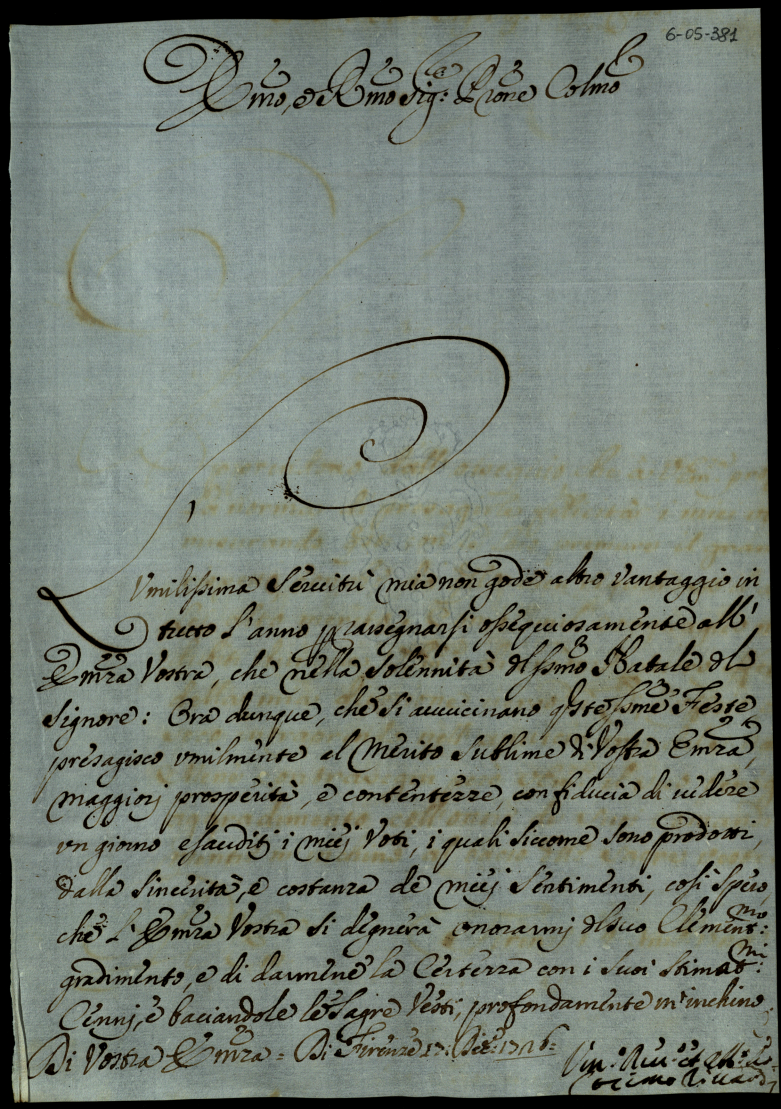 6-05-381
Emo, e Rmo Sig:re Prone Colmo
L'
Vmilissima Seruitù mia non gode altro vantaggio in
tutto l'anno p rassegnarsi ossequiosamente all'
Emza Vostra, che nella solennità del ssmo Natale del
Signore: Ora dunque, che si auuicinano qste ssme Feste
presagisco vmilmente al Merito Sublime di Vostra Emza,
maggiorj prosperità, e contentezze, con fiducia di uedere
vn giorno esauditj i miej Voti, i quali siccome sono prodotti,
dalla Sincerità, e costanza de miej Sentimenti, così spero,
che l'Emza Vostra si degnerà onorarmj del suo Clement:mo
gradimento, e di darmene la Certezza con i Suoi Stimat:mi
Cennj, e baciandole le Sagre Vesti, profondamente m'inchino
Di Vostra Emza = Di Firenze 17: Dic:e 1726
Vm:o Diu:o et Obb:o
Riccardi